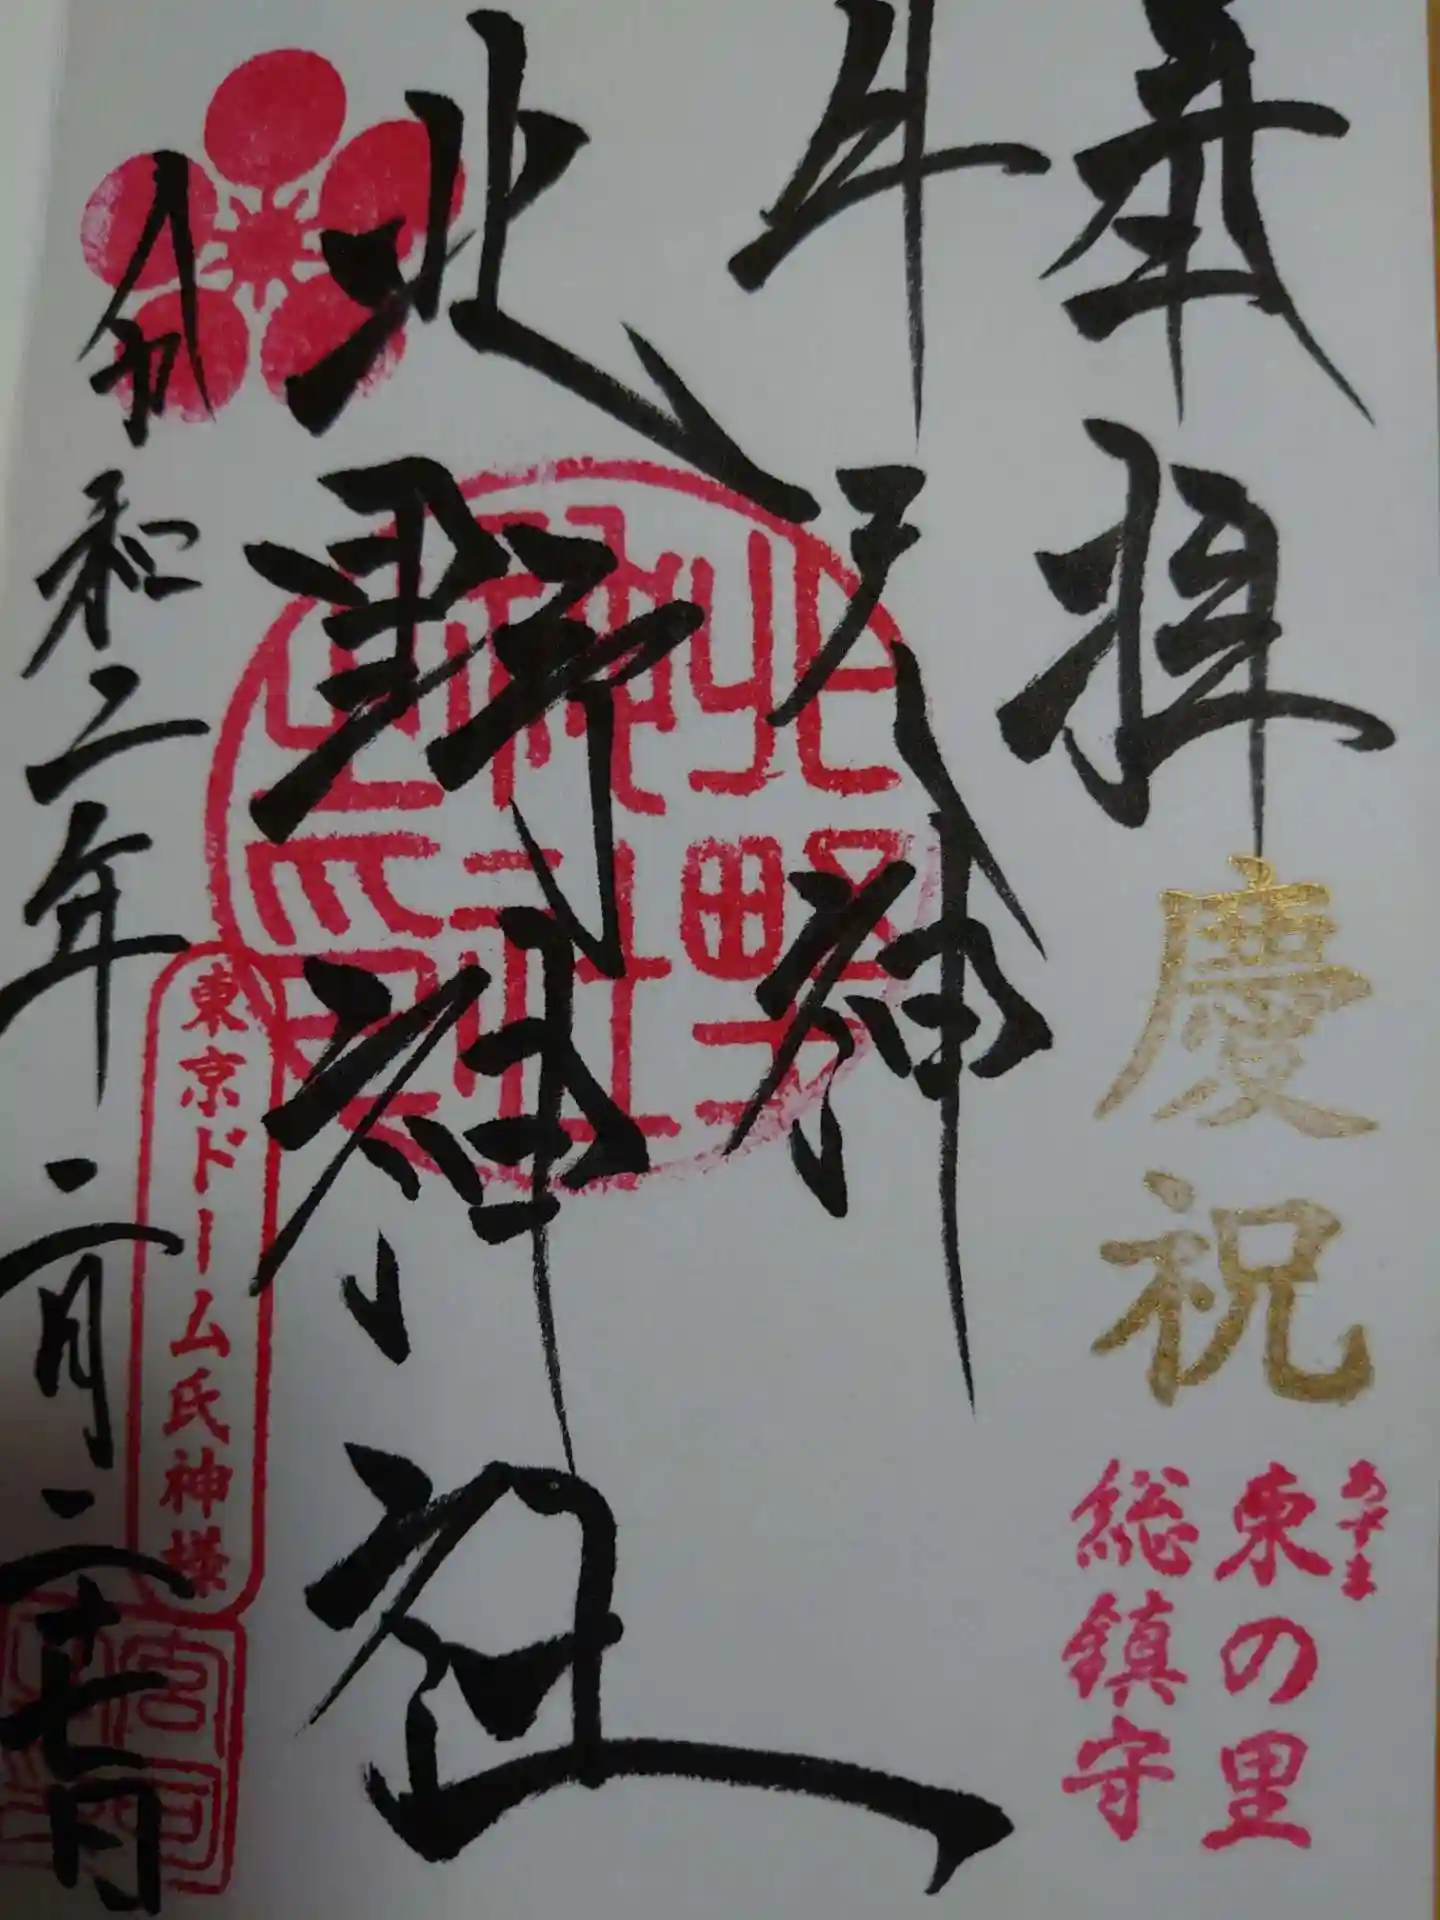 奉拝
慶祝
あずま
東の里
総鎮守
牛天神
北野神社
北野神社之印
東京ドーム氏神様
令和二年二月二十七日